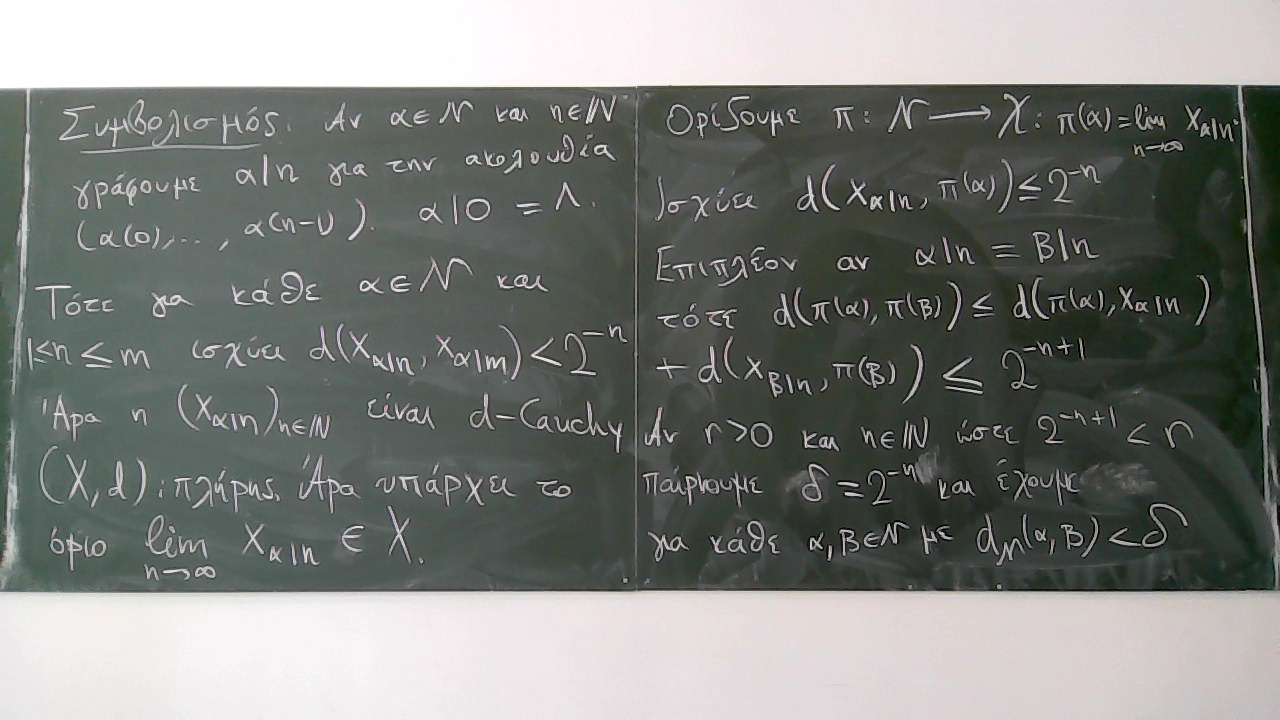 Συμβολισμός. Αν α∈𝒩 και n∈ℕ
γράφουμε α|n για την ακολουθία
(α(0),..., α(n-1)). α|0 = Λ.
Τότε για κάθε α∈𝒩 και
1<n≤m ισχύει d(x_{α|n}, x_{α|m}) < 2^{-n}
Άρα η (x_{α|n})_{n∈ℕ} είναι d-Cauchy
(X,d): πλήρης. Άρα υπάρχει το
όριο lim_{n→∞} x_{α|n} ∈ X.
Ορίζουμε π: 𝒩 → X: π(α) = lim_{n→∞} x_{α|n}.
Ισχύει d(x_{α|n}, π(α)) ≤ 2^{-n}
Επιπλέον αν α|n = β|n
τότε d(π(α), π(β)) ≤ d(π(α), x_{α|n})
+ d(x_{β|n}, π(β)) ≤ 2^{-n+1}
Αν r>0 και n∈ℕ ώστε 2^{-n+1} < r
παίρνουμε δ = 2^{-n} και έχουμε
για κάθε α,β∈𝒩 με d_𝒩(α,β) < δ